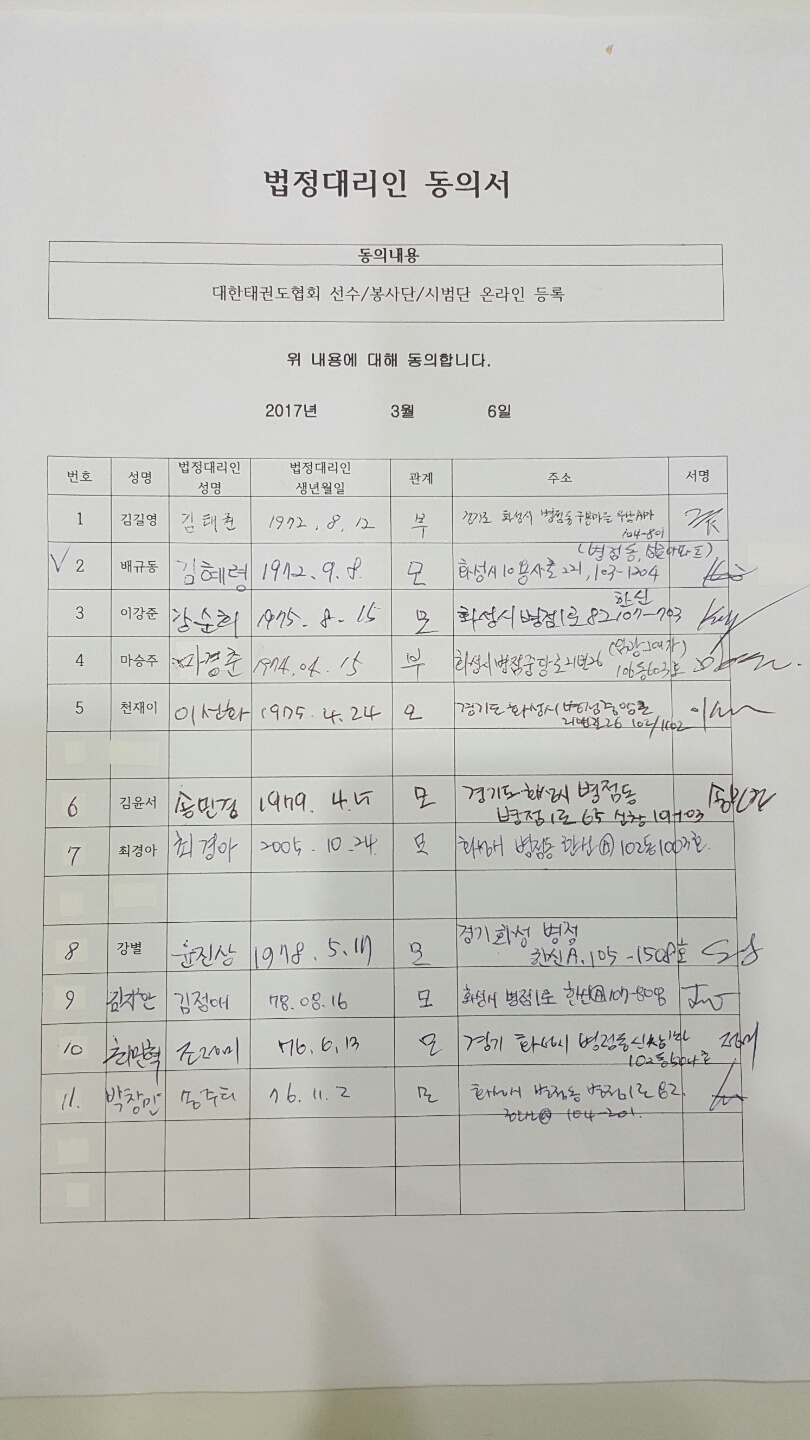 법정대리인 동의서
동의내용
대한태권도협회 선수/봉사단/시범단 온라인 등록
위 내용에 대해 동의합니다.
2017년 3월 6일
번호 성명 법정대리인 성명 법정대리인 생년월일 관계 주소 서명
1 김길영 김태준 1972. 8. 12 부 경기도 화성시 병점동 104-801
(병점동, )
√ 2 배규동 김혜령 1972. 9. 8. 모 화성시 10용사로 221, 103-1204
한신
3 이강준 강순희 1975. 8 - 15 모 화성시 병점1로 82 107-703
4 마승주 마경준 1974. 04. 15 부 화성시 병점중앙로 21번26 106동603호
5 천재이 이선화 1975. 4. 24 모 경기도 화성시 병점중앙로
21번길26 102/1102
6 김윤서 송민경 1979. 4. 5 모 경기도 화성시 병점동
병점1로 65 신창 송민경
7 최경아 최경아 2005. 10. 24. 모 화성시 병점동 한신(A) 102동1003호.
8 강별 윤진상 1978. 5. 17 모 경기 화성 병점
한신A. 105-1508호
9 김정애 78. 08. 16 모 화성시 병점1로 한신(A) 107-808
10 최민혁 76. 6, 13 모 경기 화성시 병점동 신창1차
102동504호
11. 박창민 76. 11. 2 모 화성시 병점동 병점1로 82.
한신(A) 104-201.